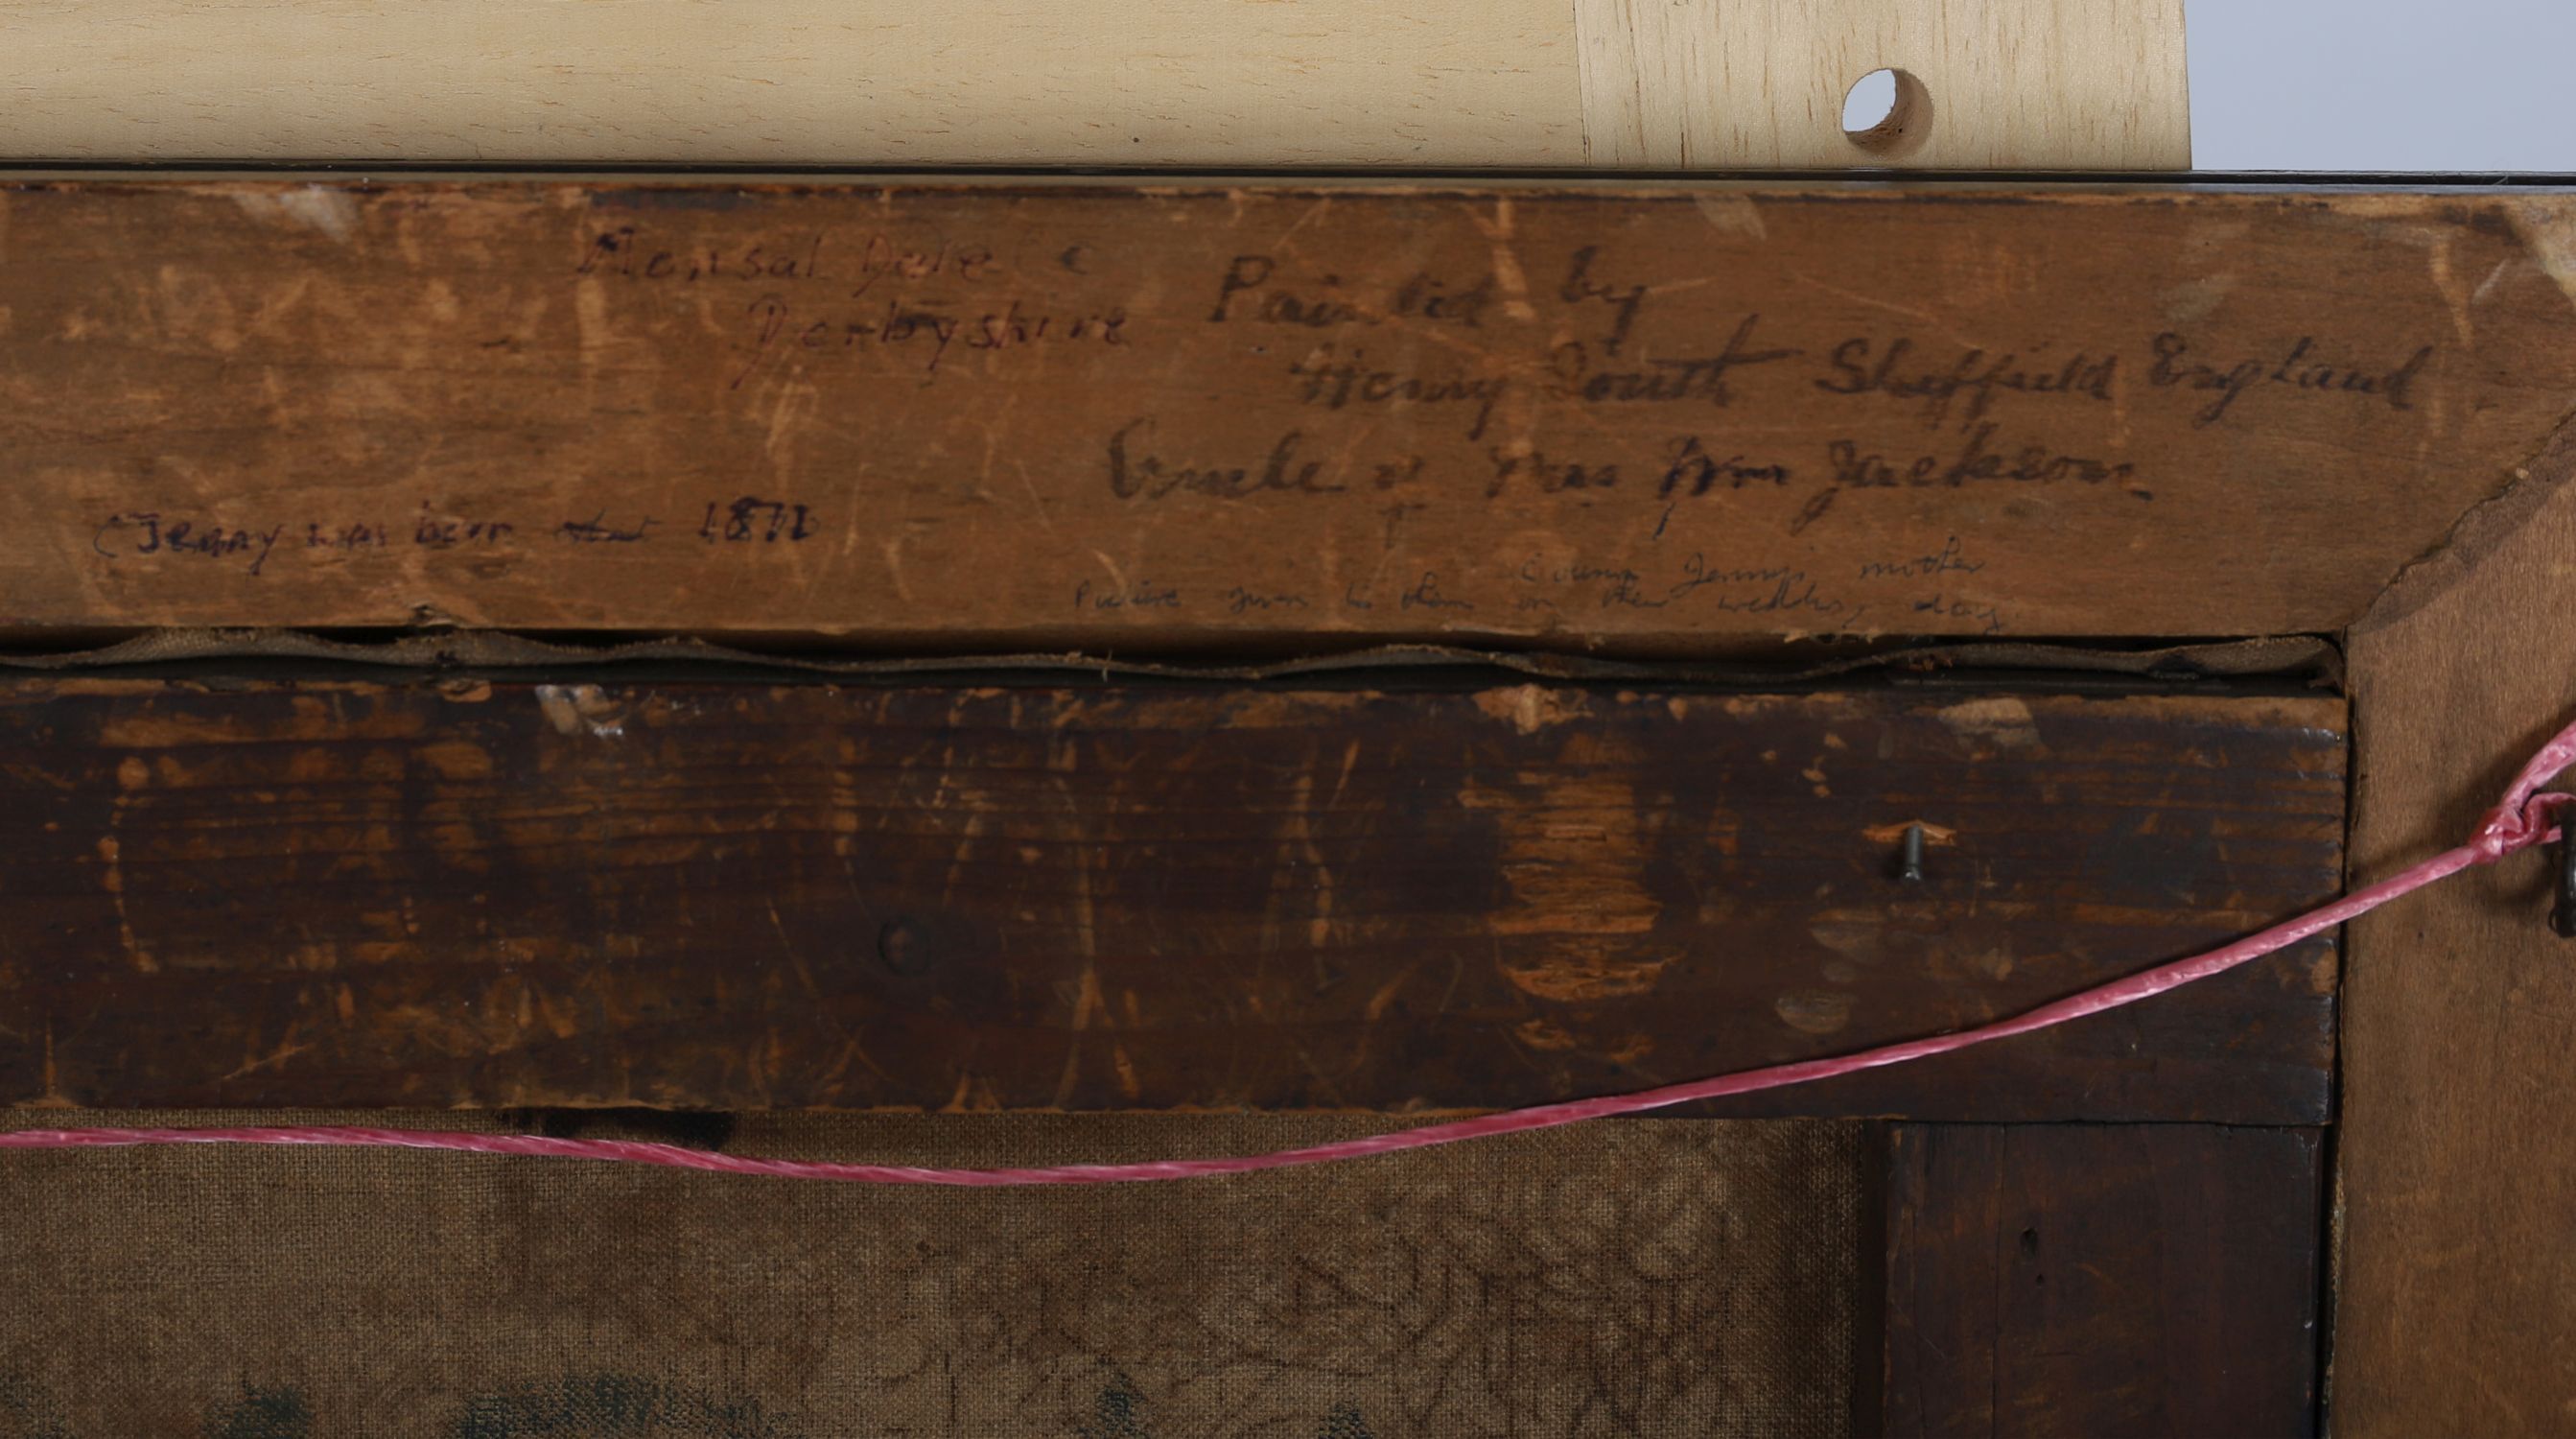 Monsal Dale
Derbyshire
Painted by
Henry South Sheffield England
Uncle of Mrs Wm Jackson
↑
Cousin Jenny's mother
Picture given to them on their wedding day
(Jenny was born 1872